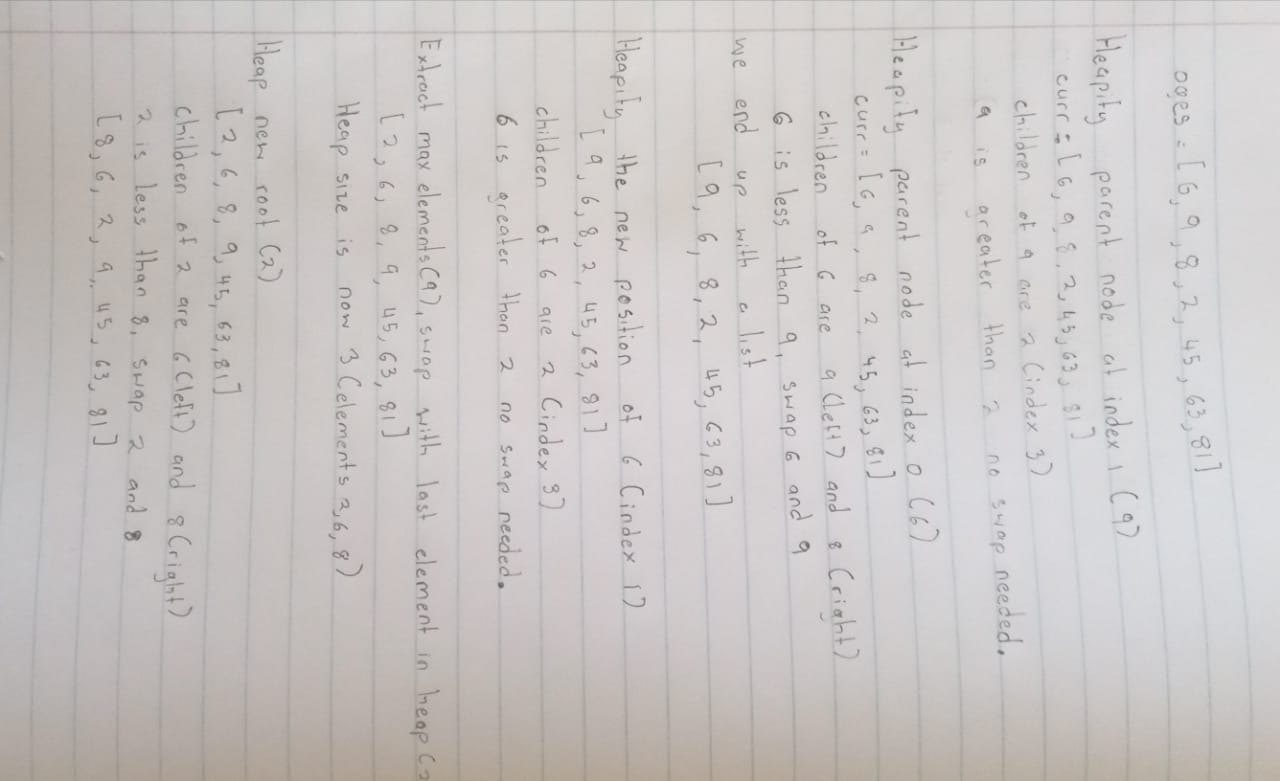 ages = [6, 9, 8, 2, 45, 63, 81]
Heapify parent node at index 1 (9)
curr = [6, 9, 8, 2, 45, 63, 81]
children of 9 are 2 (index 3)
9 is greater than 2 no swap needed.
Heapify parent node at index 0 (6)
curr = [6, 9, 8, 2, 45, 63, 81]
children of 6 are 9 (left) and 8 (right)
6 is less than 9, swap 6 and 9
we end up with a list
[9, 6, 8, 2, 45, 63, 81]
Heapify the new position of 6 (index 1)
[9, 6, 8, 2, 45, 63, 81]
children of 6 are 2 (index 3)
6 is greater than 2 no swap needed.
Extract max elements (9), swap with last element in heap (2
[2, 6, 8, 9, 45, 63, 81]
Heap size is now 3 (elements 2, 6, 8)
Heap new root (2)
[2, 6, 8, 9, 45, 63, 81]
children of 2 are 6 (left) and 8 (right)
2 is less than 8, swap 2 and 8
[8, 6, 2, 9, 45, 63, 81]